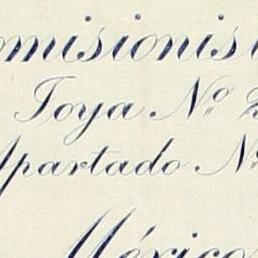 omisionis
Joya Nº 2
Apartado Nº
México